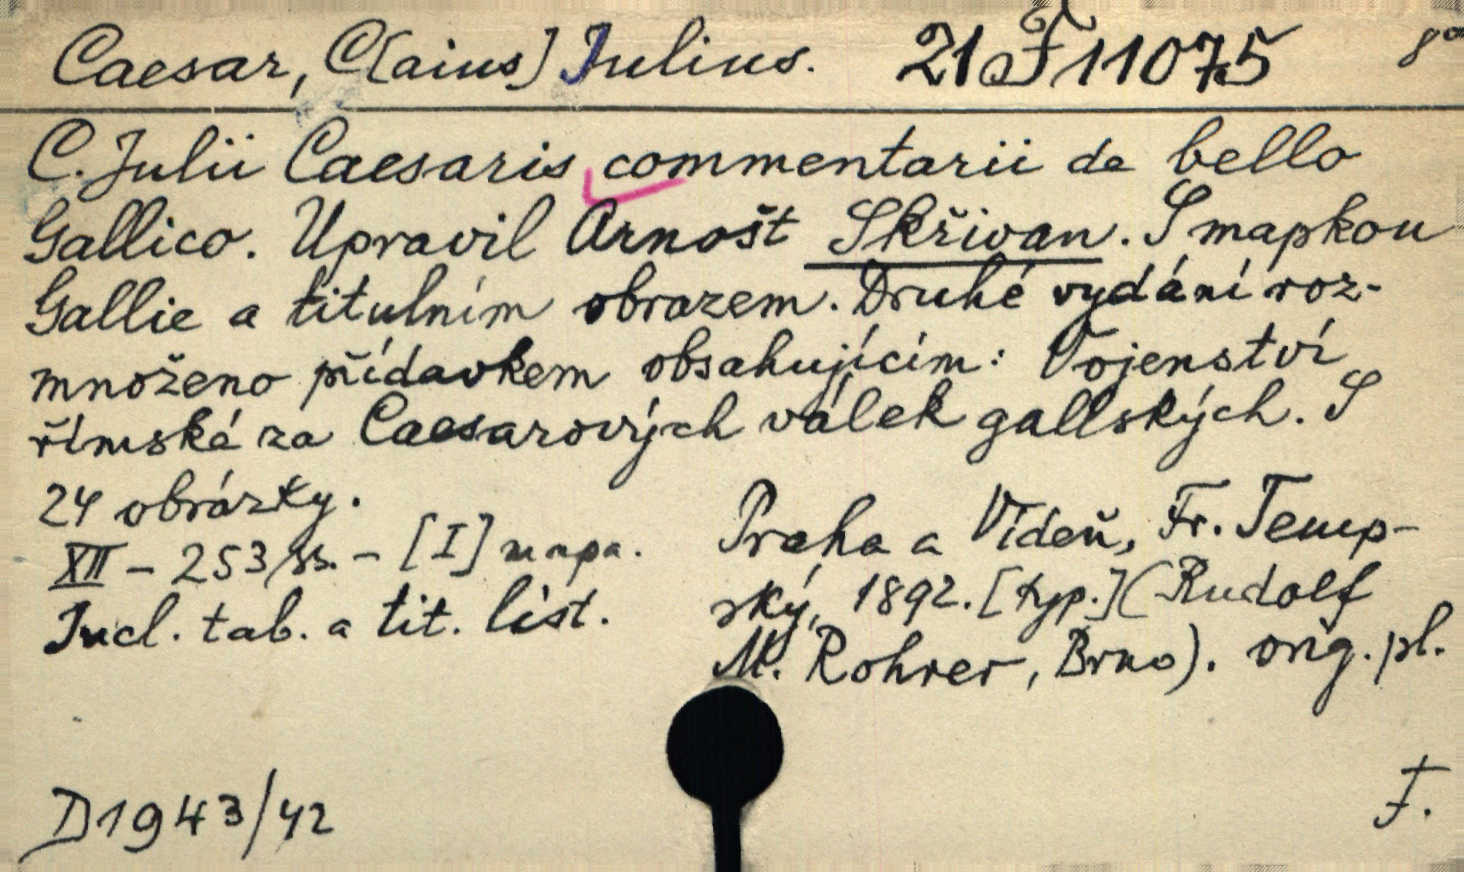 Caesar, C[aius] Julius. 21 F 11075 8°
C. Julii Caesaris commentarii de bello
Gallico. Upravil Arnošt Skřivan. S mapkou
Gallie a titulním obrazem. Druhé vydání roz-
množeno přídavkem obsahujícím: Vojenství
římské za Caesarových válek gallských. S
24 obrázky.
XII - 253 ss. - [I] mapa.
Incl. tab. a tit. list.
Praha a Vídeň, Fr. Temp-
ský, 1892. [typ.] (Rudolf
M. Rohrer, Brno). orig. pl.
D1943/42
F.